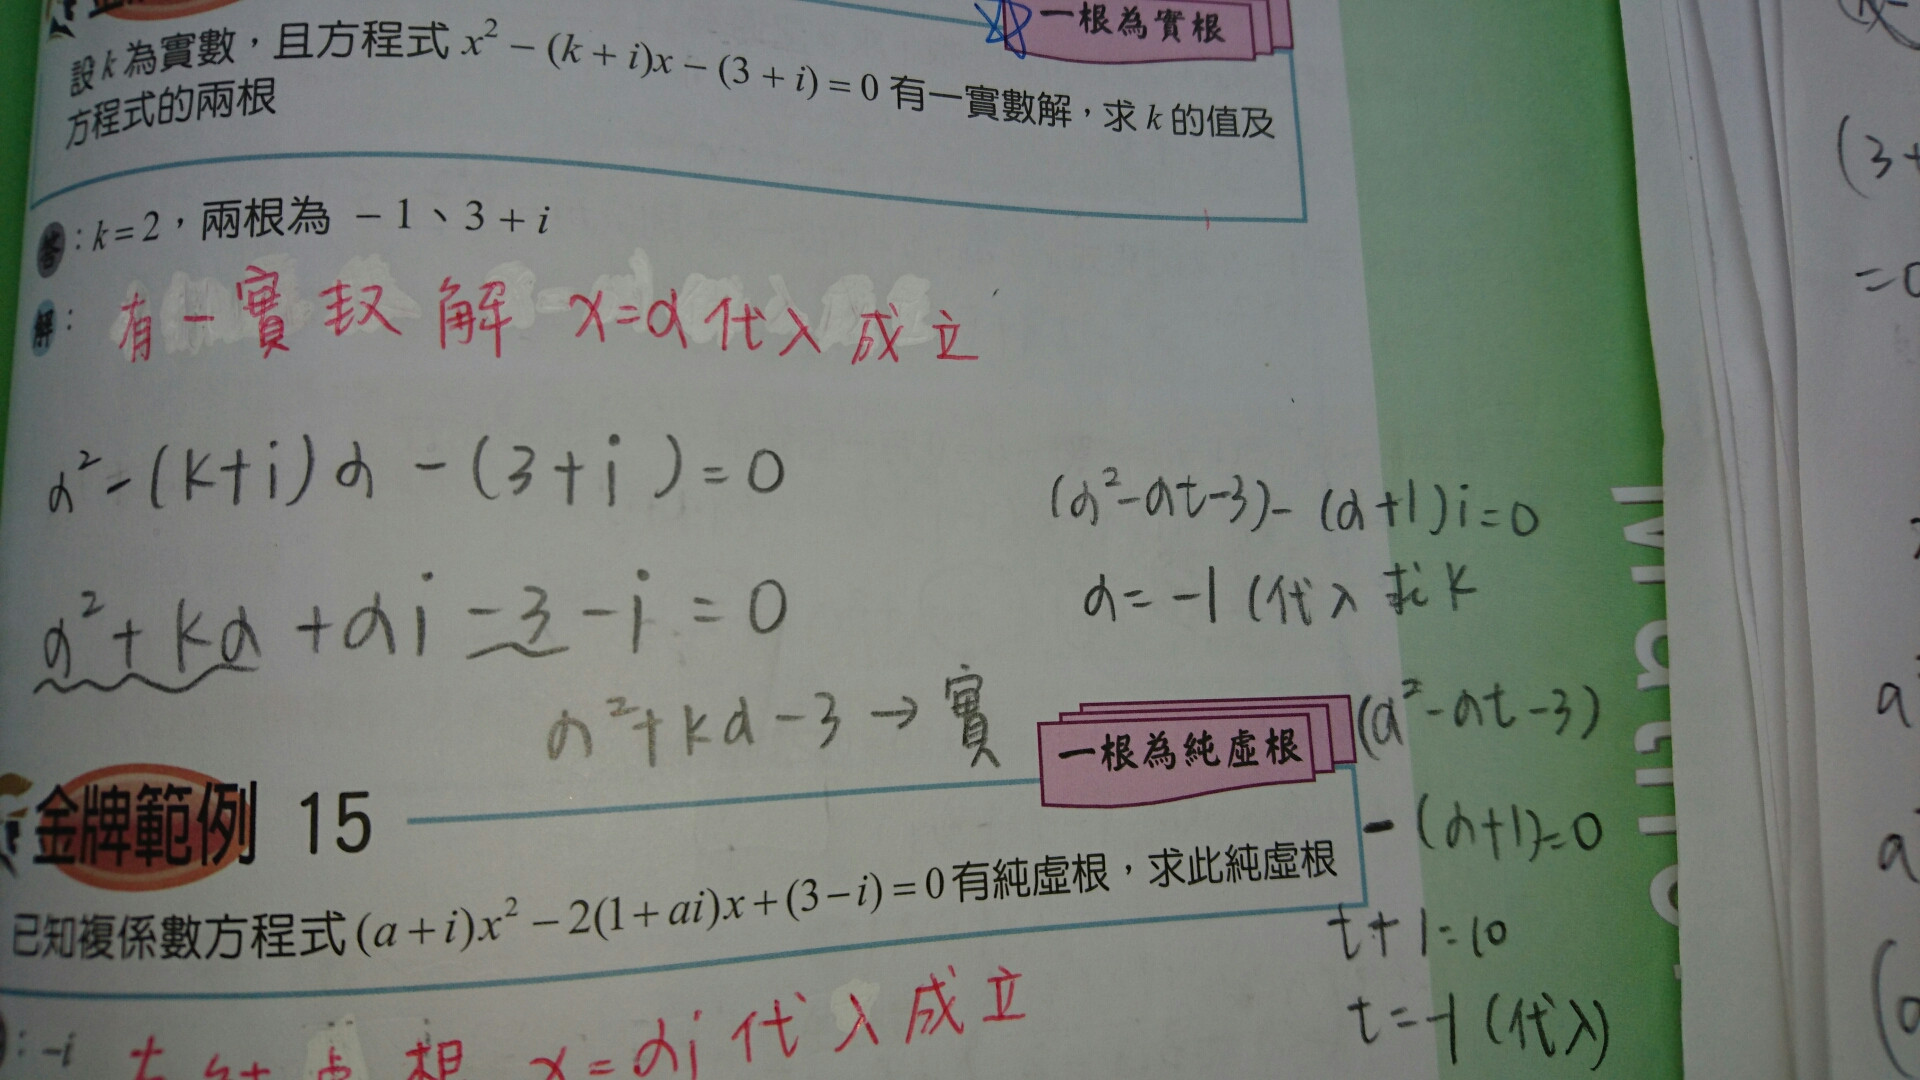 一根為實根
設k為實數，且方程式 x² − (k + i)x − (3 + i) = 0 有一實數解，求 k 的值及
方程式的兩根
答：k = 2，兩根為 − 1、3 + i
解：有一實数解 x=α代入成立
α²-(k+i)α-(3+i)=0
α²+kα+αi-3-i=0
α²+kα-3→實
(α²-αt-3)-(α+1)i=0
α=-1(代入求k
(α²-αt-3)
-(α+1)=0
t+1=10
t=-1(代入)
一根為純虛根
金牌範例 15
已知複係數方程式 (a + i)x² − 2(1 + ai)x + (3 − i) = 0 有純虛根，求此純虛根
：−i
根 x=αi代入成立
Math
(3+
=0
a²